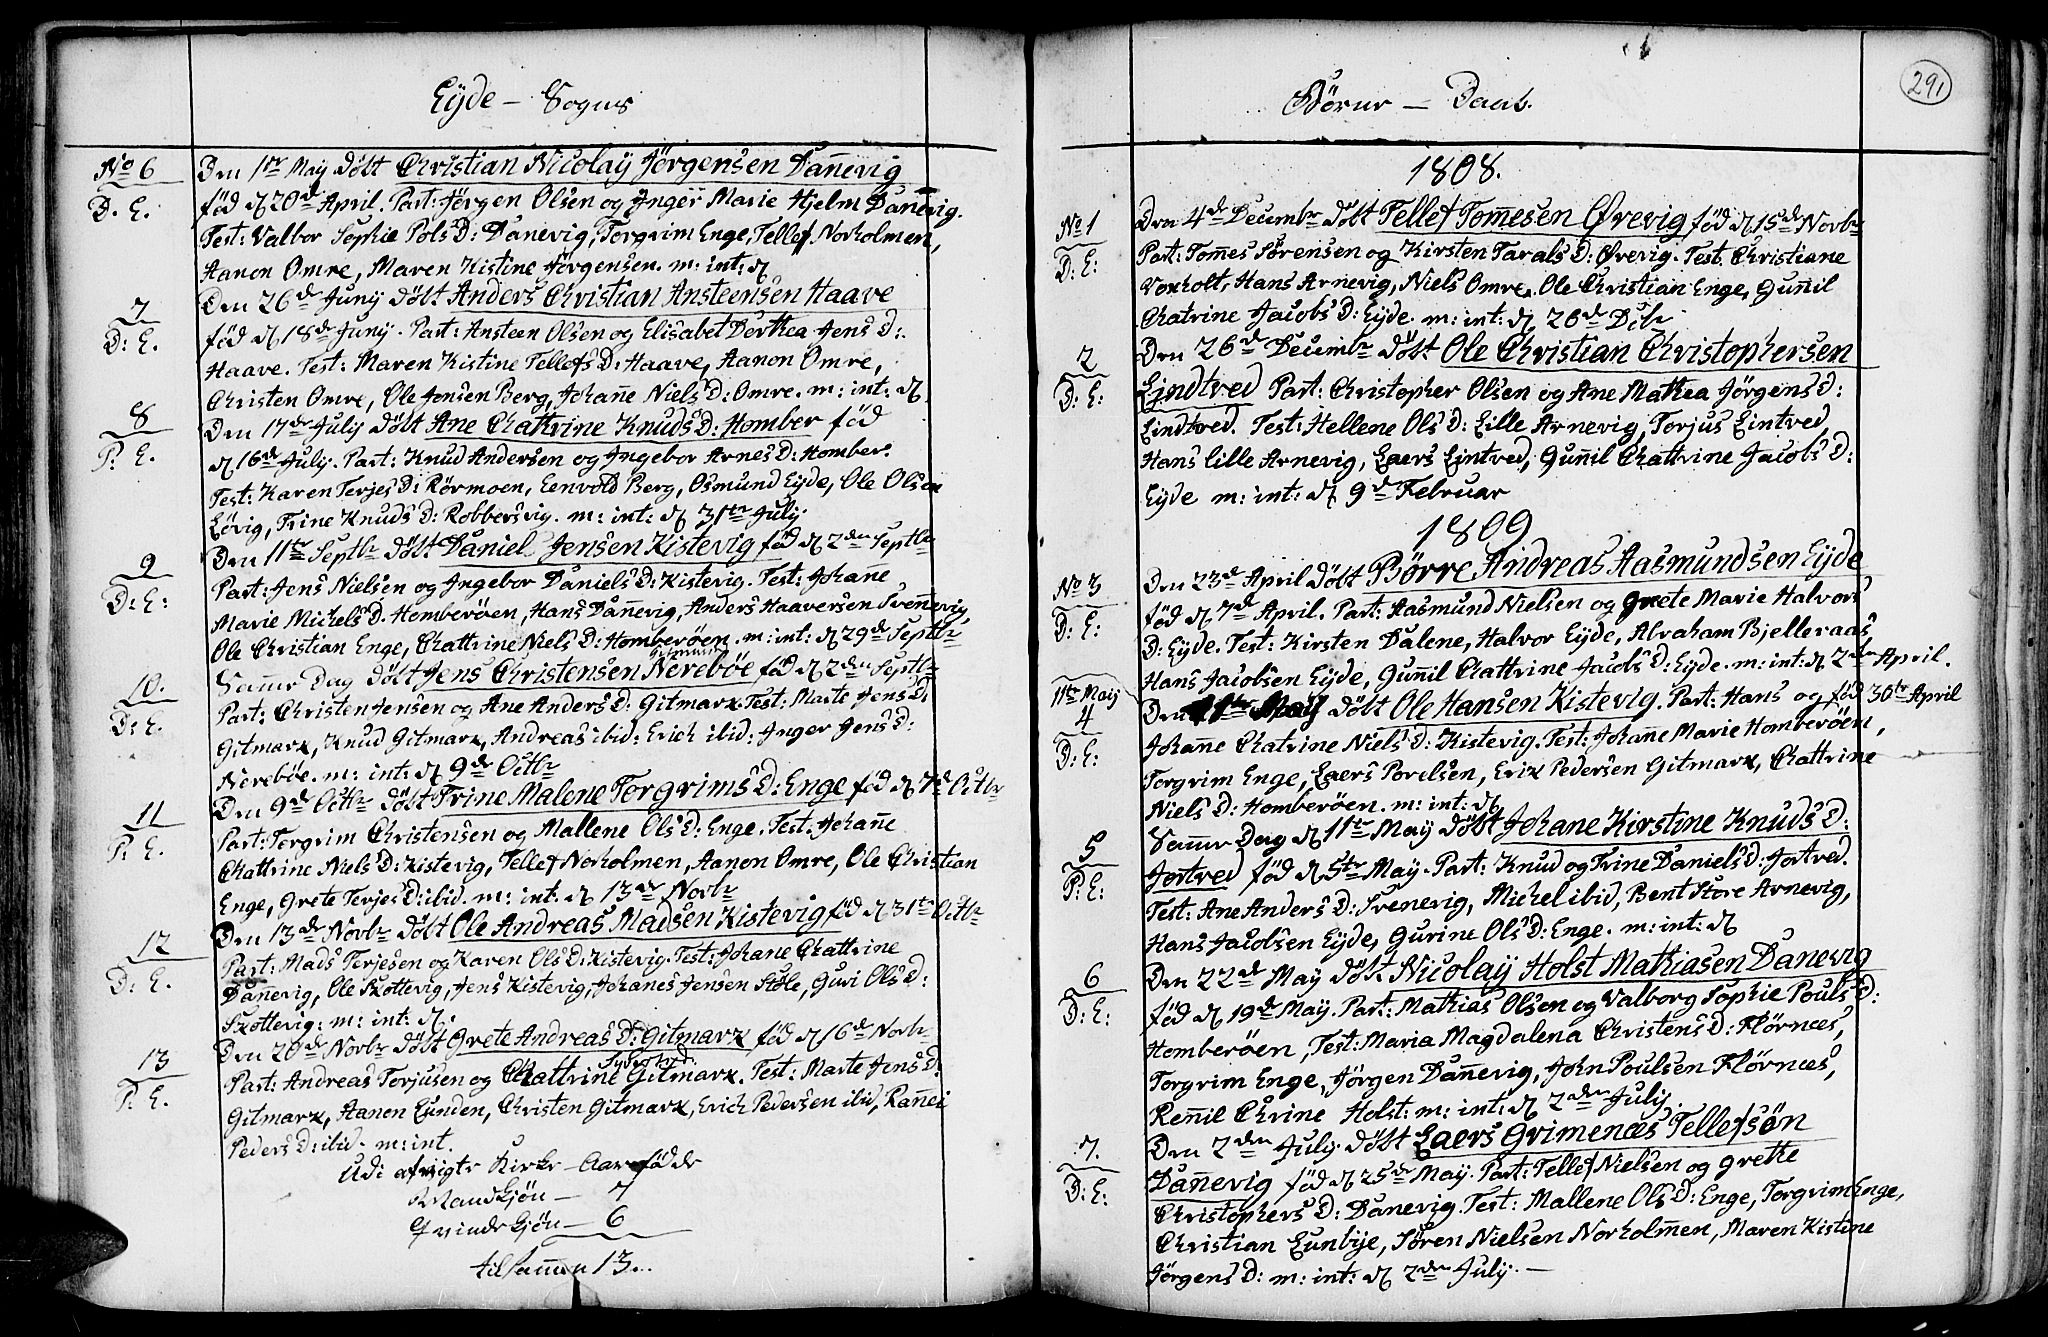 Eyde – Sogns
No 6
D. E.
Den 1te May döbt Christian Nicolaÿ Jörgensen Dan̄evig
föd d 20de April. Part: Jörgen Olsen og Inger Marie Hjelm Dan̄evig.
Test: Valbor Sophie Pols D: Danevig, Torgrim Enge, Tellef Norholmen,
Aanon Omre, Maren Kistine Jörgensen. m: int: d
7
D: E.
Den 26de Junÿ döbt Anders Christian Ansteensen Haave
föd d 18de Junÿ. Part: Ansteen Olsen og Elisabet Dorthea Jens D:
Haave. Test: Maren Kistine Tellefs D: Haave, Aanon Omre,
Christen Omre, Ole Jensen Berg, Johan̄e Niels D: Omre. m: int: d
8
P: E.
Den 17de Julÿ döbt Ane Chattrine Knuds D: Homber föd
d 16de Julÿ. Part: Knud Andersen og Ingebor Arnes D: Homber.
Test: Karen Terjes D: Rörmoen, Eenvold Berg, Osmund Eyde, Ole Olsen
Lövig, Trine Knuds D: Robbersvig. m: int: d 31te Julÿ.
9
D: E:
Den 11te Septbr döbt Daniel Jensen Kistevig föd d 2den Septbr
Part: Jens Nielsen og Ingebor Daniels D: Kistevig. Test: Johan̄e
Marie Michels D. Homberöen, Hans Dan̄evig, Anders Haaversen Sven̄evig,
Ole Christian Enge, Chattrine Niels D: Homberöen. m: int: d 29de Septbr
10.
D: E.
Samme Dag döbt Jens Christensen Nereböe föd d 2den Septbr
Part: Christen Jensen og Ane Anders D: Gitmark. Test: Marte Jens D:
Gitmark, Knud Gitmark, Andreas ibid: Erich ibid: Inger Jens D:
Nereböe. m: int: d 9de Octbr
11
P: E.
Den 9de Octbr döbt Trine Malene Torgrims D: Enge föd d 7de Octbr
Part: Torgrim Christensen og Mallene Ols D: Enge. Test: Johan̄e
Chattrine Niels D: Kistevig, Tellef Norholmen, Aanon Omre, Ole Christian
Enge, Grete Terjes D: ibid. m: int: d 13de Novbr
12
D: E.
Den 13de Novbr döbt Ole Andreas Madsen Kistevig föd d 31te Octbr
Part: Mads Terjesen og Karen Ols D: Kistevig. Test: Johane Chattrine
Dan̄evig, Ole Skottevig, Jens Kistevig, Johanes Jensen Støle, Guri Ols D:
Skottevig: m: int: d.
13
P: E.
Den 20de Novbr döbt Grete Andreas D: Gitmark föd d 16de Novbr
Part: Andreas Torjusen og Chattrine Gitmark. Test: Marte Jens D:
Gitmark, Aanon Lunden, Christen Gitmark, Erich Pedersen ibid, Ran̄ei
Peders D: ibid. m: int.
Udi afvigte Kirke-Aar födde
Mandkjön – 7
Qvindekjön – 6
tilsam̄en 13.
291
Börne – Daab.
1808.
No 1
D: E:
Den 4de Decembr döbt Tellef Tom̄esen Ørevig föd d 15de Novbr
Part: Tom̄es Sörensen og Kirsten Tarals D: Ørevig. Test. Christiane
Voxholt, Hans Arnevig, Niels Omre, Ole Christian Enge, Gun̄il
Chatrine Jacobs D: Eyde. m: int: d 26de Decbr
2
D: E:
Den 26de Decembr döbt Ole Christian Christophersen
Lindtved Part: Christopher Olsen og Ane Mathea Jörgens D:
Lindtved. Test: Hellene Ols D: Lille Arnevig, Torjus Lintved,
Hans Lille Arnevig, Laers Lintved, Gun̄il Chattrine Jacobs D:
Eyde m: int: d 9de Februar
1809
No 3
D: E:
Den 23de April döbt Börre Andreas Aasmundsen Eyde
föd d 7de April. Part: Aasmund Nielsen og Grete Marie Halvors
D: Eyde. Test: Kirsten Dalene, Halvor Eyde, Abraham Bjelleraas,
Hans Jacobsen Eyde, Gun̄il Chattrine Jacobs D: Eyde. m: int: d 2den April.
11te Maij
4
D: E:
Den 11te May döbt Ole Hansen Kistevig. Part: Hans og föd 30te April
Johan̄e Chatrine Niels D: Kistevig. Test: Johan̄e Marie Homberöen,
Torgrim Enge, Laers Povelsen, Erik Pedersen Gitmark, Chattrine
Niels D: Homberöen. m: int: d
5
P: E:
Samme Dag d 11te May döbt Johane Kirstine Knuds D:
Jortved föd d 5te May. Part: Knud og Trine Daniels D: Jortved.
Test: Ane Anders D: Svenevig, Michel ibid, Bent Store Arnevig,
Hans Jacobsen Eyde, Gurine Ols D: Enge. m: int: d
6
D: E:
Den 22de Maÿ döbt Nicolaÿ Holst Mathiasen Danevig
föd d 19de Maÿ. Part: Mathias Olsen og Valborg Sophie Pouls D:
Homberöen, Test: Maria Magdalena Christens D: Flörnæs,
Torgrim Enge, Jörgen Dan̄evig, John Poulsen Flörnæs,
Ren̄il Chrine Holst: m: int: d 2den Julÿ.
7.
D: E:
Den 2den Julÿ döbt Laers Grimenæs Tellefsön
Dan̄evig föd d 25de Maÿ. Part: Tellef Nielsen og Grethe
Christophers D: Danevig. Test: Mallene Ols D: Enge, Torgrim Enge,
Christian Lunbye, Sören Nielsen Norholmen, Maren Kistine
Jörgens D: m: int: d 2den Julÿ. –